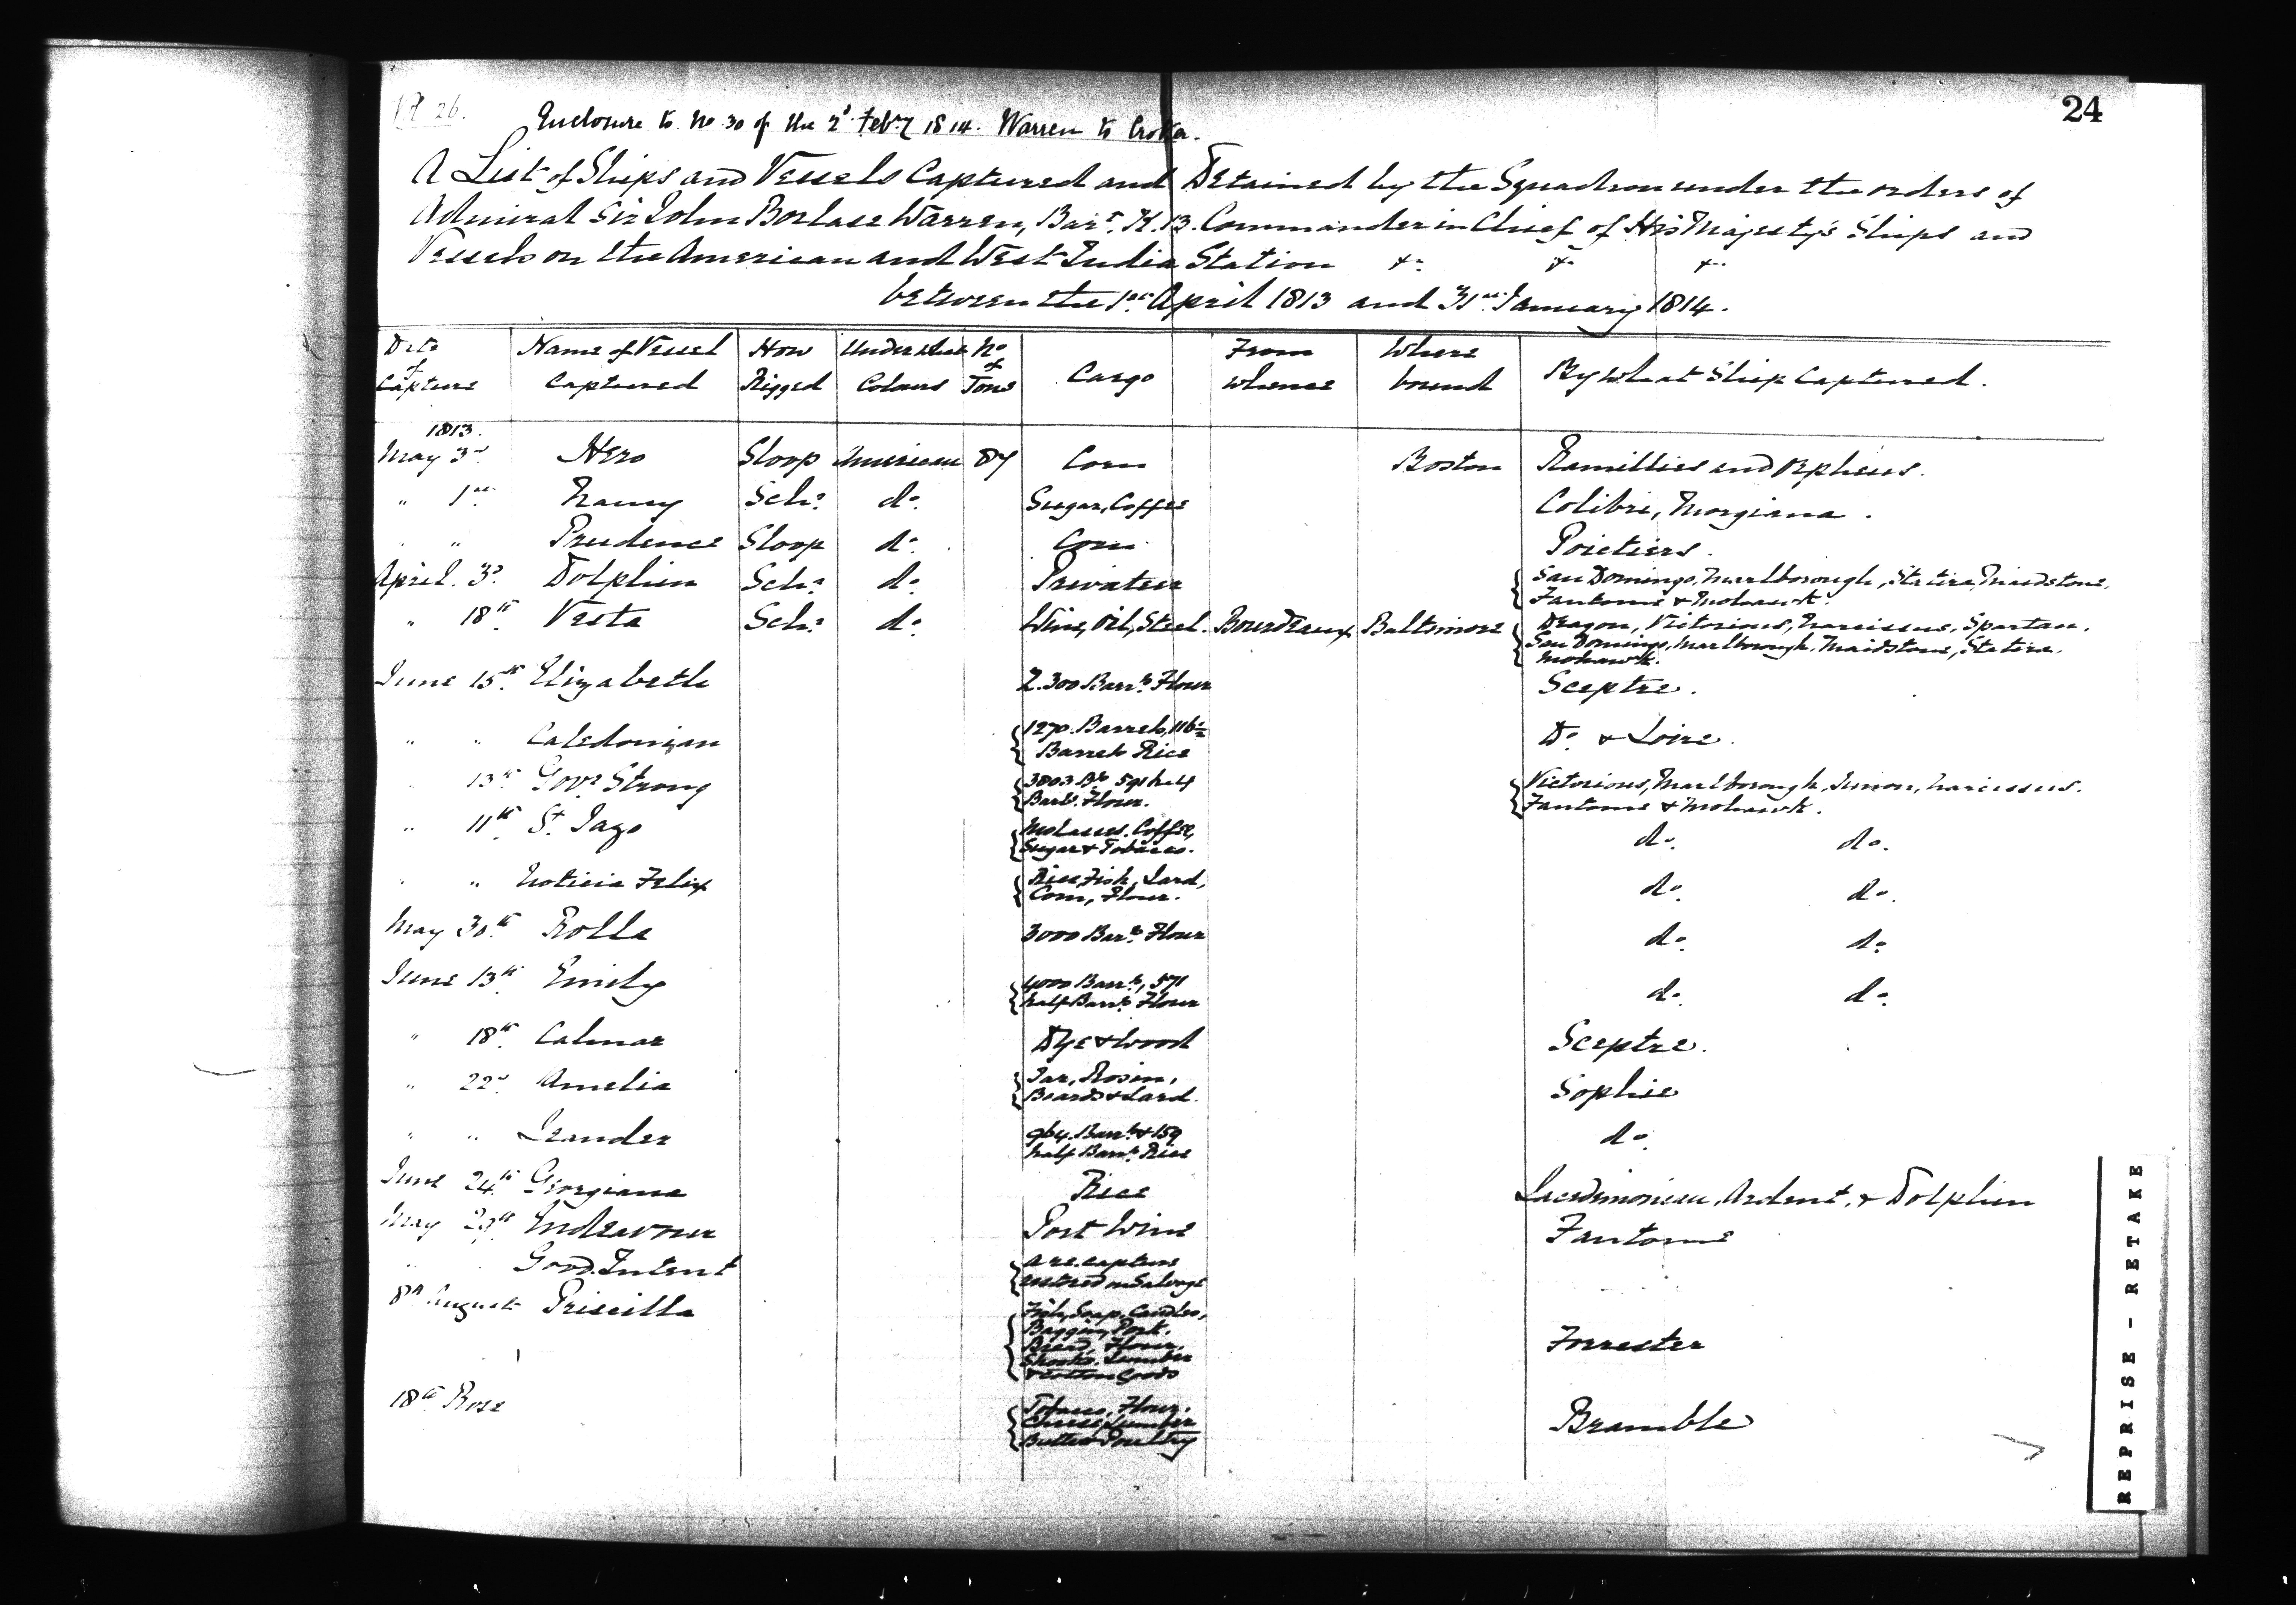 24
26.
Enclosure to No 30 of the 2d Feby 1814. Warren to Croker.
A List of Ships and Vessels Captured and Detained by the Squadron under the orders of
Admiral Sir John Borlase Warren, Bart. K.B. Commander in Chief of His Majesty's Ships and
Vessels on the American and West India Station &c &c &c
between the 1st April 1813 and 31st January 1814.
Date of Capture | Name of Vessel Captured | How Rigged | Under what Colours | No of Tons | Cargo | From whence | Where bound | By What Ship Captured.
1813.
May 3d Hero Sloop American 87 Corn Boston Ramillies and Orpheus.
" 1st Nancy Schr. do. Sugar, Coffee Colibri, Morgiana.
" " Prudence Sloop do. Corn Poictiers.
April 3d Dolphin Schr. do. Privateer San Domingo, Marlborough, Statira, Maidstone,
Fantome & Mohawk.
" 18th Vesta Schr. do. Wine, Oil, Steel. Bourdeaux Baltimore Dragon, Victorious, Narcissus, Spartan.
San Domingo, Marlborough, Maidstone, Statira.
Mohawk.
June 15th Elizabeth 2.300 Barrs. Flour Sceptre.
" " Caledonian 1270. Barrels, 116 ½
Barrels Rice Do. & Loire.
" 13th Govr. Strong 3803 Bls 591 half
Barls. Flour. Victorious, Marlborough, Junon, Narcissus.
Fantome & Mohawk.
" 11th St. Iago Molasses. Coffee,
Sugar & Tobacco. do. do.
" " Noticia Felix Rice, Fish, Lard,
Corn, Flour. do. do.
May 30th Rolla 3000 Barrs. Flour do. do.
June 13th Emily 4000 Barrs., 571
half Barrs. Flour do. do.
" 18th Calmar Dye & Wood Sceptre.
" 22d Amelia Tar, Rosin,
Boards & Lard. Sophie
" " Leander 964. Barrs. & 159
half Barrs. Rice do.
June 24th Georgiana Rice Lacedemonian, Ardent, & Dolphin
May 29th Endeavour Port Wine Fantome
Good Intent a recapture
restored on Salvage
8th August Priscilla Fish, Soap, Candles,
Bagging, Pork.
Bread, Flour,
Shooks, Lumber
& Cotton Goods Forrester
18th Rose Tobacco, Flour.
Cheese, Lumber
Butter & Poultry Bramble
REPRISE - RETAKE